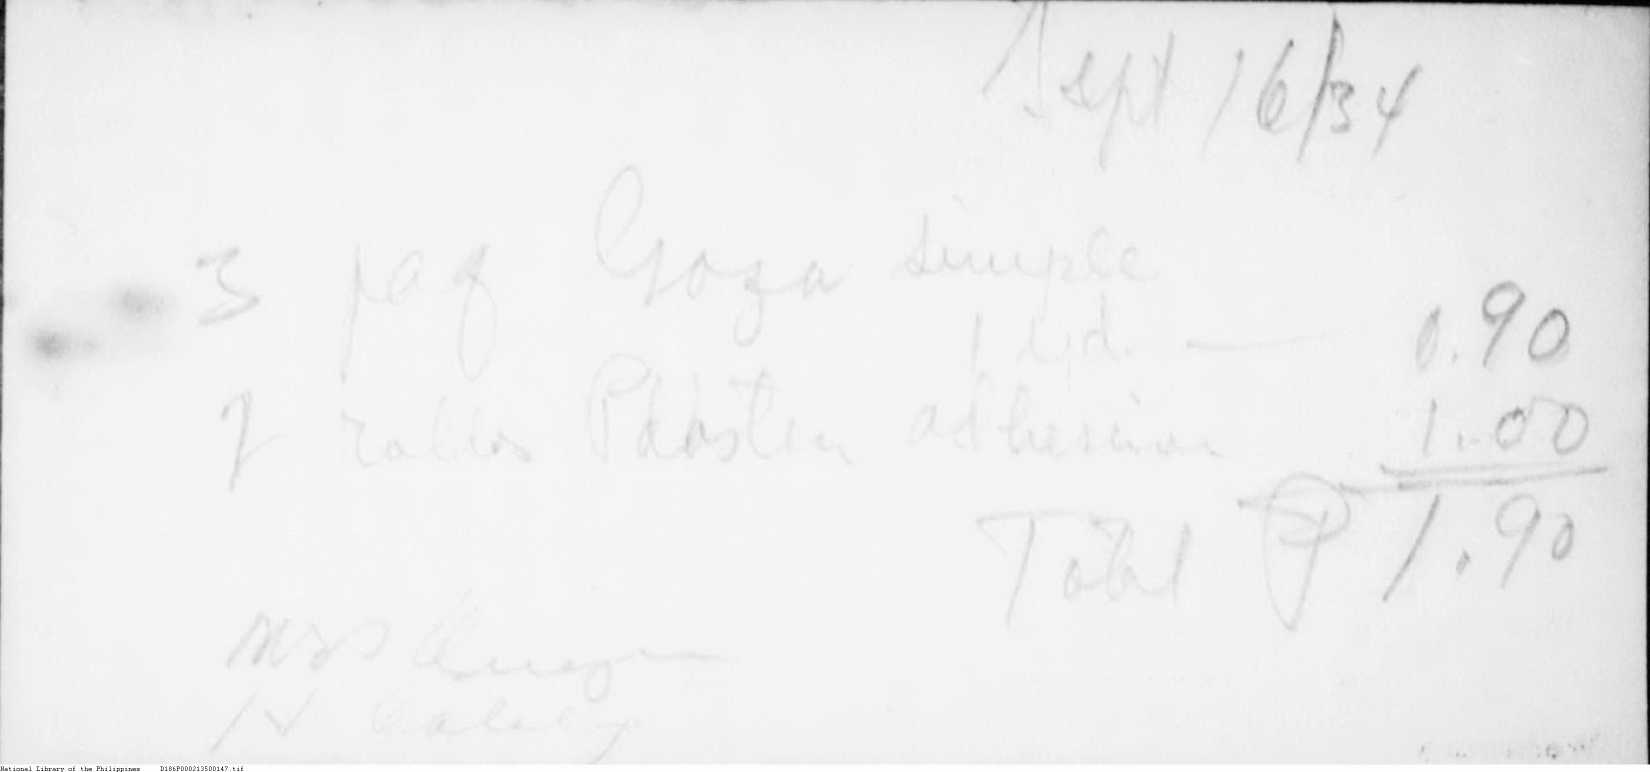 Sept 16/34
3 paq Goza simple
1 yd. — 0.90
2 rollos Plaster adhesive 1.00
Total ₱ 1.90
Mrs Quezon
National Library of the Philippines D186P000213500147.tif